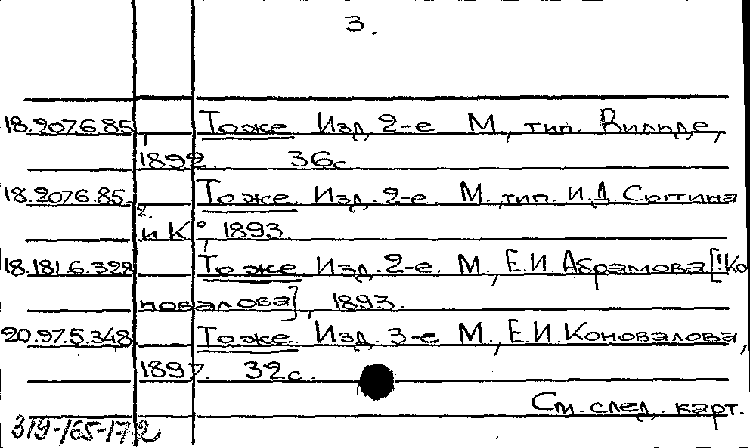 3.
18.2076.85 То же Изд. 2-е М., тип. Вильде,
1
1892. 36с
18.2076.85. То же Изд. 2-е М., тип. И.Д. Сытина
2.
и К°, 1893.
18.181.6.328 То же Изд. 2-е. М., Е.И. Абрамова [!Ко
новалова], 1893.
20.97.5.348 То же Изд. 3-е М., Е.И. Коновалова,
1897. 32с.
См. след. карт.
319-165-172